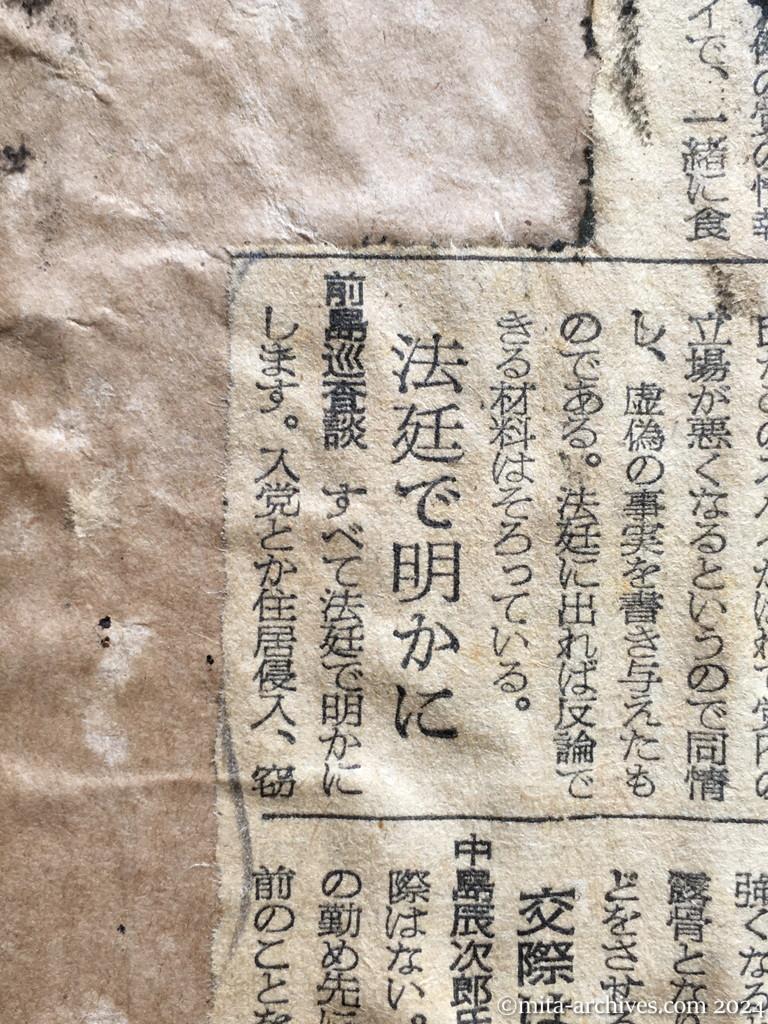 イで、一緒に食
立場が悪くなるというので同情
し、虚偽の事実を書き与えたも
のである。法廷に出れば反論で
きる材料はそろっている。
法廷で明かに
前島巡査談 すべて法廷で明かに
します。入党とか住居侵入、窃
強くなる
露骨とな
どをさせ
交際
中島辰次郎氏
際はない。
の勤め先に
前のことを
©mita-archives.com 2024